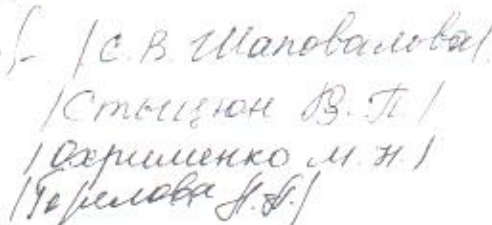 /С.В. Шаповалова/
/Стыцюн В.П/
/Охрименко М.Н/
/Горелова Н.П./